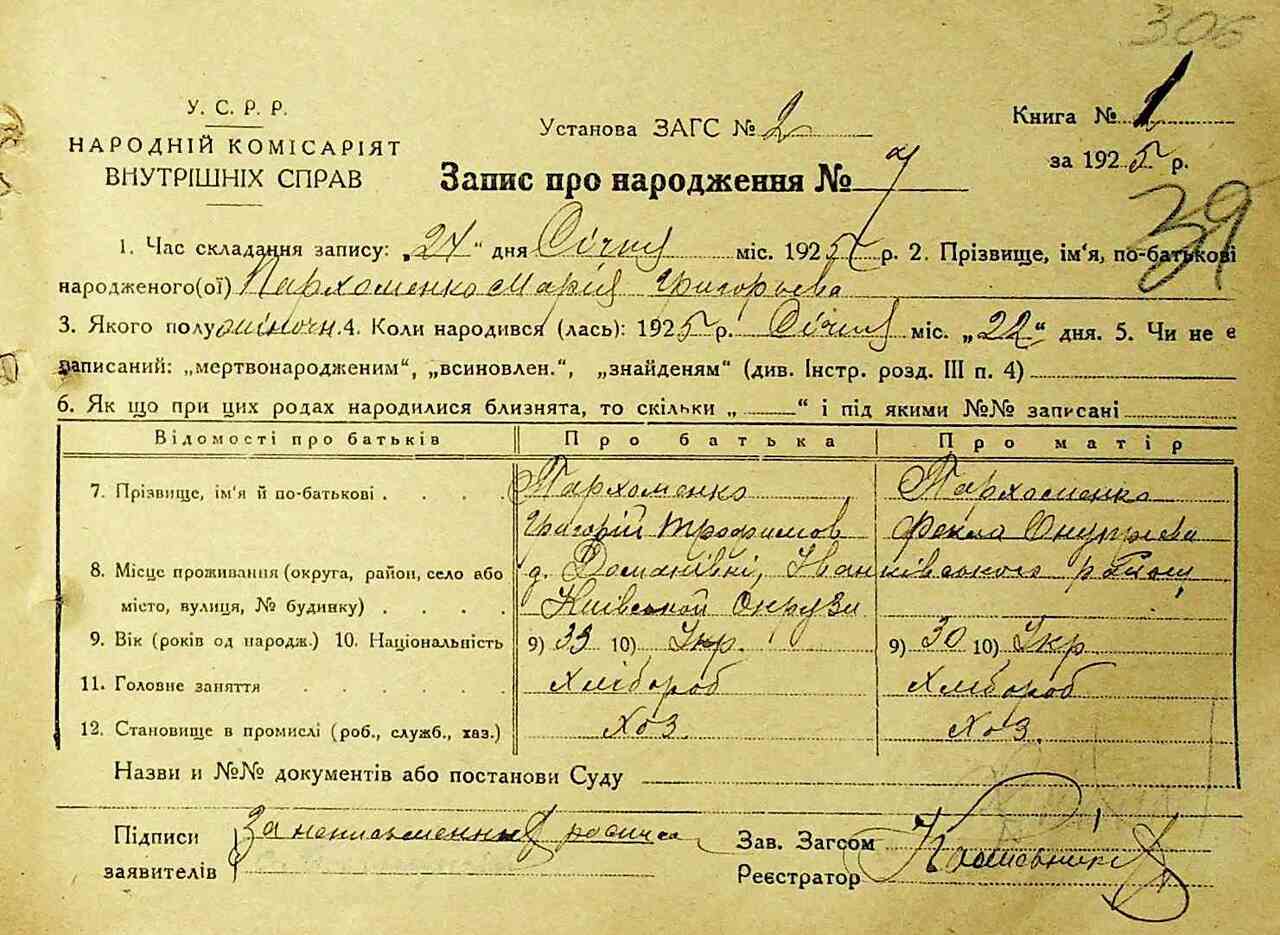 306
У. С. Р. Р.
НАРОДНІЙ КОМІСАРІЯТ
ВНУТРІШНІХ СПРАВ
Установа ЗАГС № 2
Книга № 1
за 1925 р.
Запис про народження № 7
39
1. Час складання запису: „24“ дня Січня міс. 1925 р. 2. Прізвище, ім‘я, по-батькові
народженого(ої) Пархоменко Марія Григорьева
3. Якого полу жіночн. 4. Коли народився (лась): 1925 р. Січня міс. „22“ дня. 5. Чи не є
записаний: „мертвонародженим“, „всиновлен.“, „знайденям“ (див. Інстр. розд. III п. 4)
6. Як що при цих родах народилися близнята, то скільки „ “ і під якими №№ записані
Відомості про батьків Про батька Про матір
7. Прізвище, ім‘я й по-батькові Пархоменко Пархоменко
Григорій Трофимов Фекла Онупрієва
8. Місце проживання (округа, район, село або д. Домаківні, Іванківського району
місто, вулиця, № будинку) Київської Округи
9. Вік (років од народж.) 10. Національність 9) 33 10) Укр. 9) 30 10) Укр
11. Головне заняття хлібороб хлібороб
12. Становище в промислі (роб., служб., хаз.) хоз. хоз.
Назви и №№ документів або постанови Суду
Підписи За неписьменных Зав. Загсом
заявителів Реєстратор